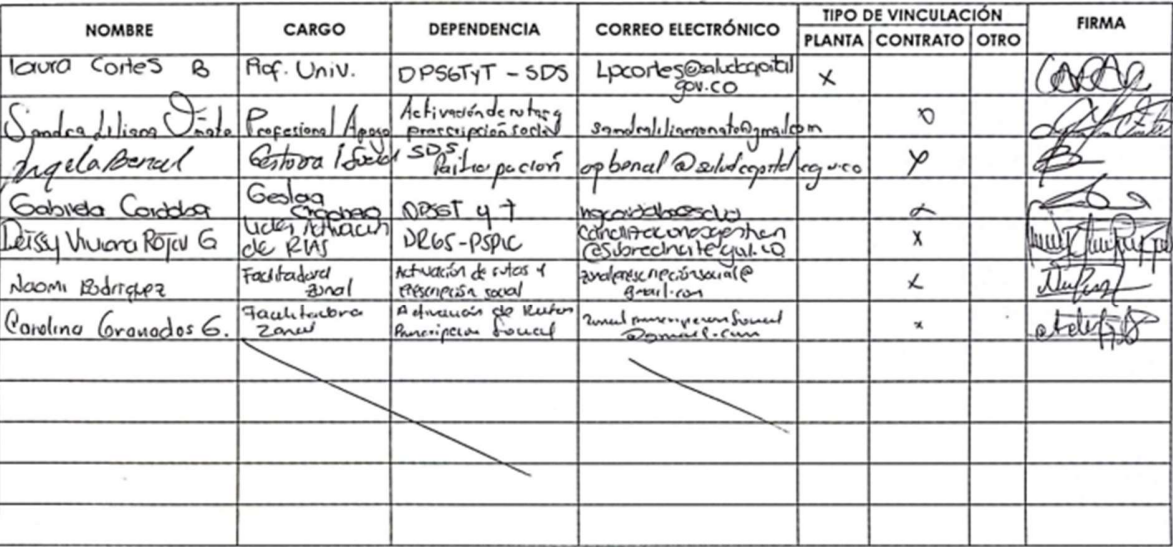 NOMBRE CARGO DEPENDENCIA CORREO ELECTRÓNICO TIPO DE VINCULACIÓN FIRMA
PLANTA CONTRATO OTRO
Laura Cortes B Prof. Univ. DPSGTyT - SDS Lpcortes@saludcapital
gov.co X
Sandra Liliana Oñate Profesional Apoyo Activación de rutas y
prescripción social sandralilianaonate@gmail.com
Angela Bernal Gestora SDS
Participación apbernal@saludcapital.gov.co X
Gabriela Cordoba Gestora
DPSGT y T
Deissy Viviana Rojas G Lider Activacion
de RIAS DRGS-PSPIC
@subrednorte.gov.co X
Naomi Rodriguez Facilitadora
zonal Activación de rutas y
Prescripción social zonalprescripcionsocial@
gmail.com X
Carolina Granados G. Facilitadora
Zonal Activación de Rutas
Prescripcion Social
@gmail.com X